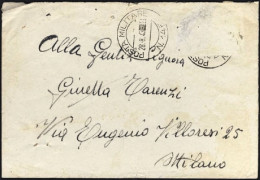 POSTA MILITARE
Alla Gentil Signora
Ginetta Varenzi
Via Eugenio Villoresi 25
Milano